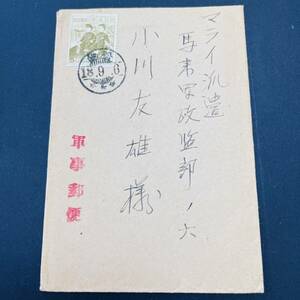 マライ派遣
馬来軍政監部ノ六
小川友雄様
18.9.6
軍事郵便